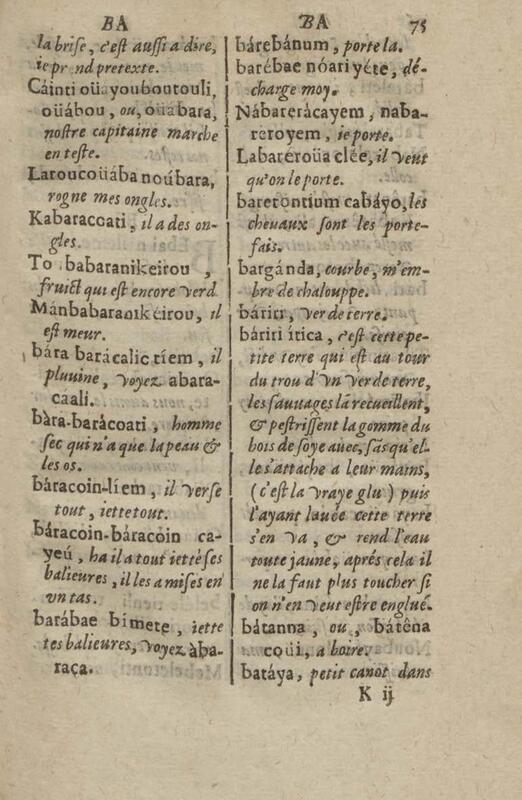 BA
la brise, c'est aussi a dire,
ie pr nd pretexte.
Cáinti oüayouboutouli,
oüábou, ou, oüabara,
nostre capitaine marche
en teste.
Laroucoüába noúbara,
rogne mes ongles.
Kabaracoati, il a des on-
gles.
To babaranikeirou,
fruict qui est encore verd
Mánbabaranikéirou, il
est meur.
bára barácalic tíem, il
pluuine, voyez abara-
caali.
bàra-barácoati, homme
sec qui n'a que la peau &
les os.
báracoin-líem, il verse
tout, iette tout.
báracoin-báracoin ca-
yeú, ha il a tout ietté ses
balieures, il les a mises en
vn tas.
barábae bimete, iette
tes balieures, voyez àba-
raça.
BA 75
bárebánum, porte la.
barébae nóari yéte, dé-
charge moy.
Nábarerácayem, naba-
reroyem, ie porte.
Labaréroüa clée, il veut
qu'on le porte.
barerontium cabáyo, les
cheuaux sont les porte-
fais.
bargánda, courbe, m'em-
bre de chalouppe.
báriri, ver de terre.
báriri ítica, c'est cette pe-
tite terre qui est au tour
du trou d'vn ver de terre,
les sauuages la recueillent,
& pestrissent la gomme du
bois de soye auec, sãs qu'el-
le s'attache a leur mains,
(c'est la vraye glu) puis
l'ayant lauée cette terre
s'en va, & rend l'eau
toute jaune, aprés cela il
ne la faut plus toucher si
on n'en veut estre englué.
bátanna, ou, bátêna
coüi, a boire.
batáya, petit canot dans
K ij